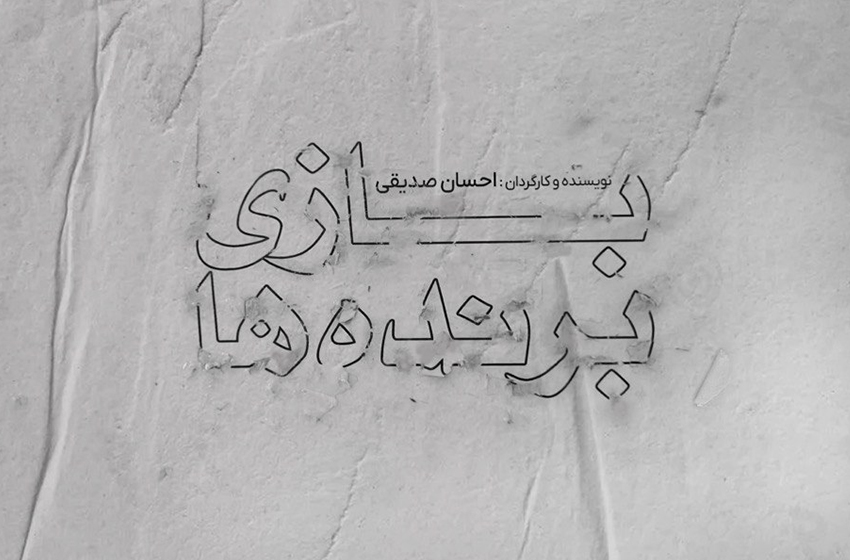 نویسنده و کارگردان : احسان صدیقی
بازی
برنده ها